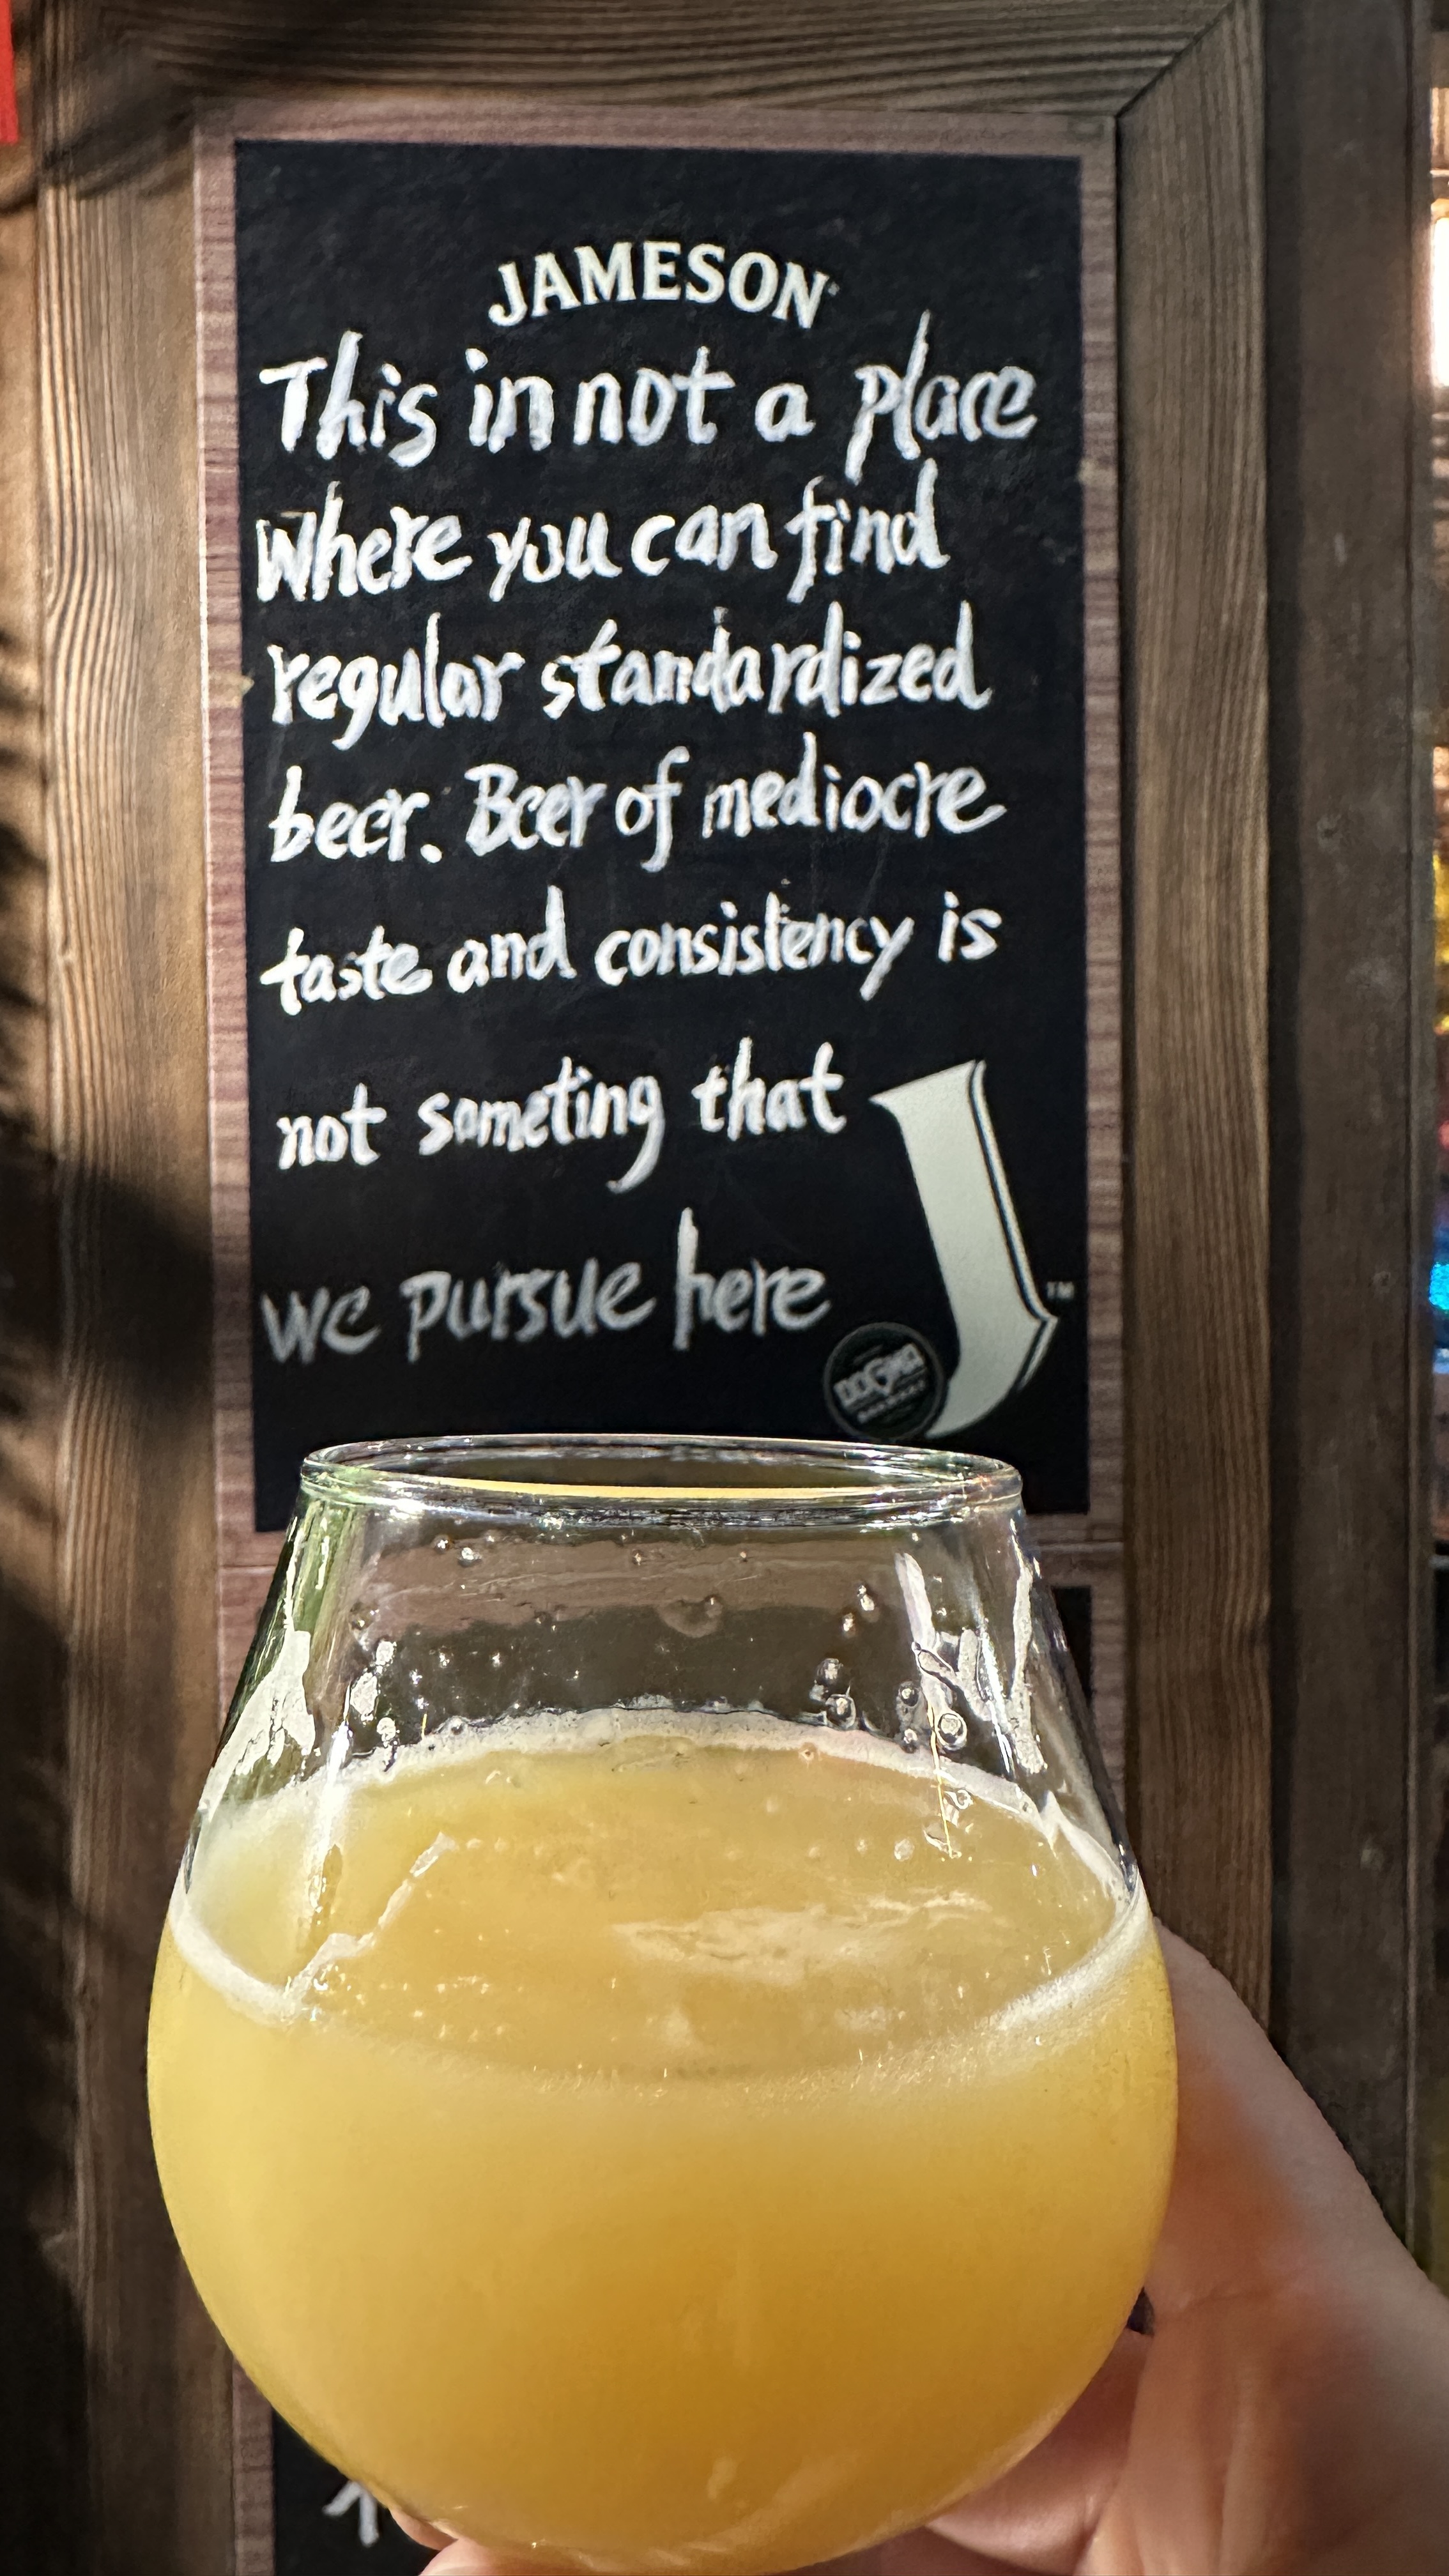 JAMESON
This in not a place
Where you can find
regular standardized
beer. Beer of mediocre
taste and consistency is
not someting that
we pursue here
TM